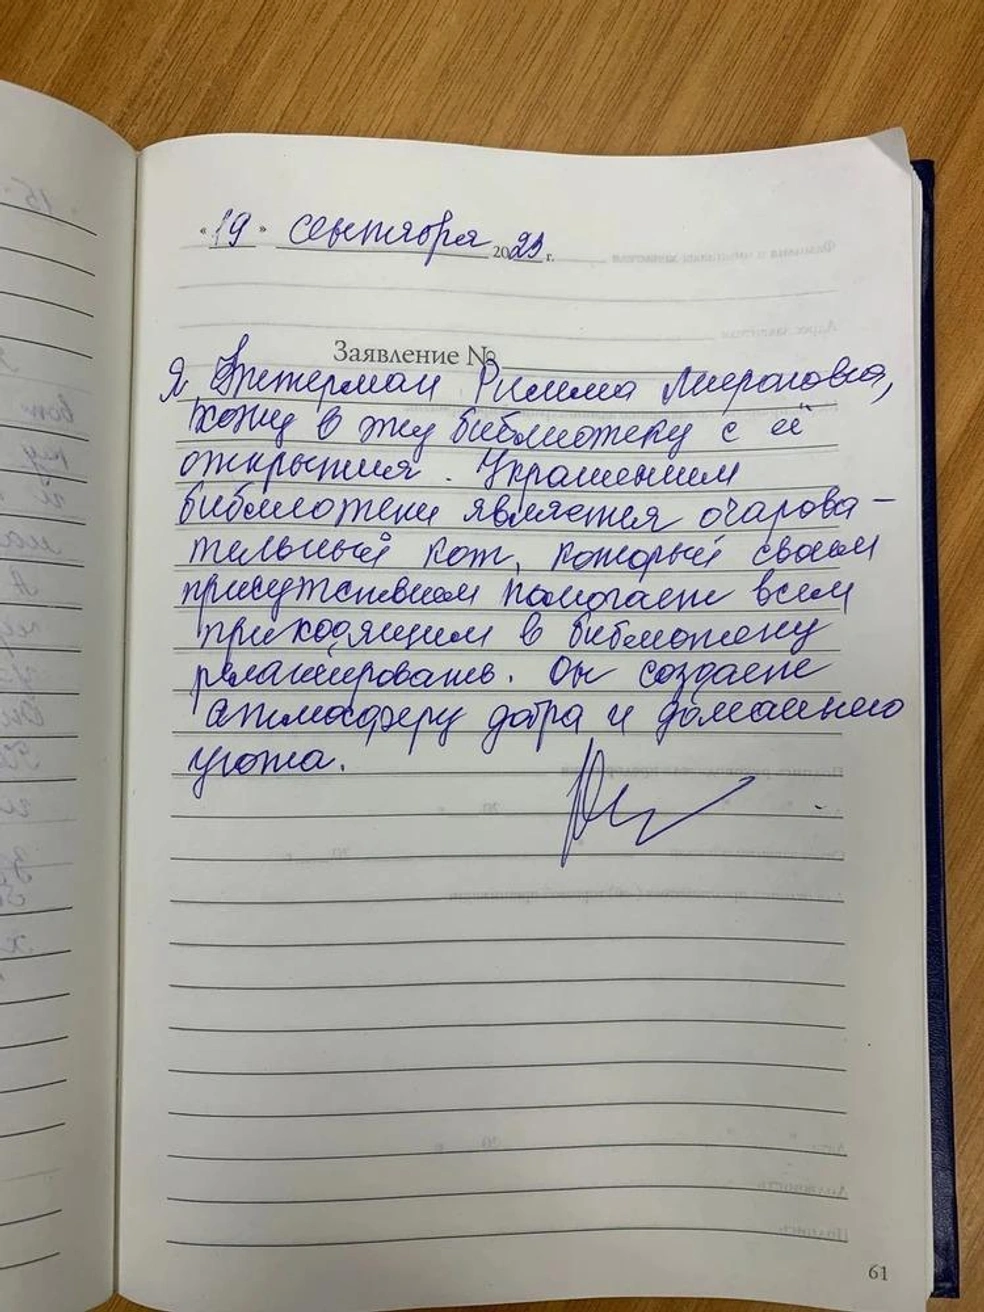 «19» сентября 2023 г.
Заявление №
Я, Римма Мироновна,
хожу в эту библиотеку с её
открытия. Украшением
библиотеки является очарова-
тельный кот, который своим
присутствием помогает всем
приходящим в библиотеку
релаксировать. Он создаёт
атмосферу добра и домашнего
уюта.
61